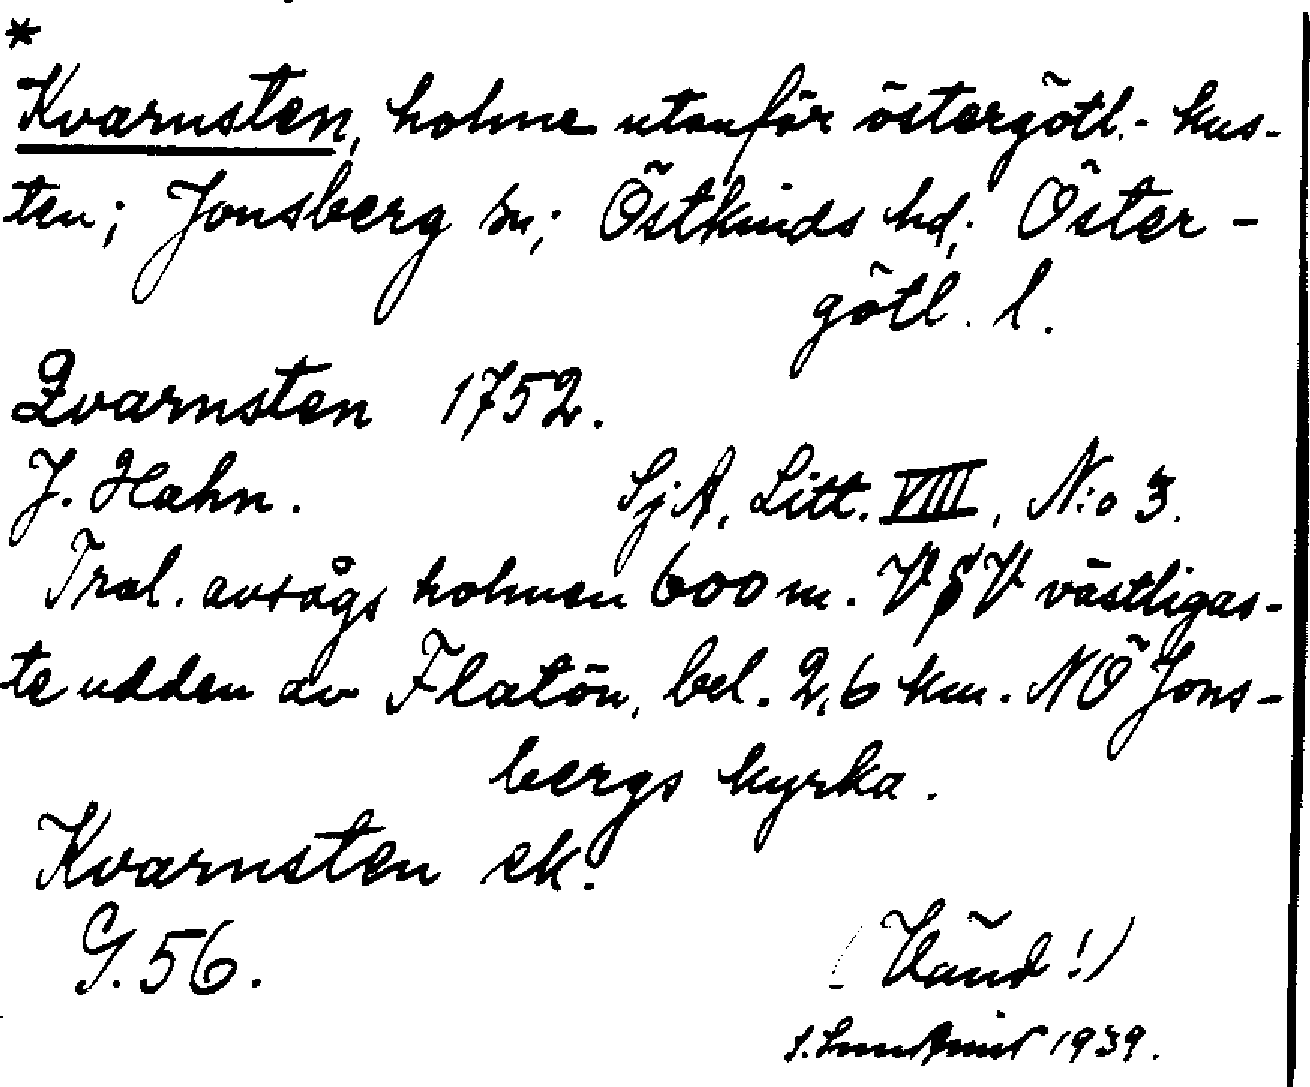 *
Kvarnsten, holme utanför östergötl.- kus-
ten; Jonsberg sn; Östkinds hd; Öster-
götl. l.
Qvarnsten 1752.
J. Hahn. SjA, Litt. VIII, N:o 3.
Trol. avsågs holmen 600 m. VSV västligas-
te udden av Flatön, bel. 2,6 km. NÖ Jons-
bergs kyrka.
Kvarnsten ek.
G. 56. (Vänd!)
1939.